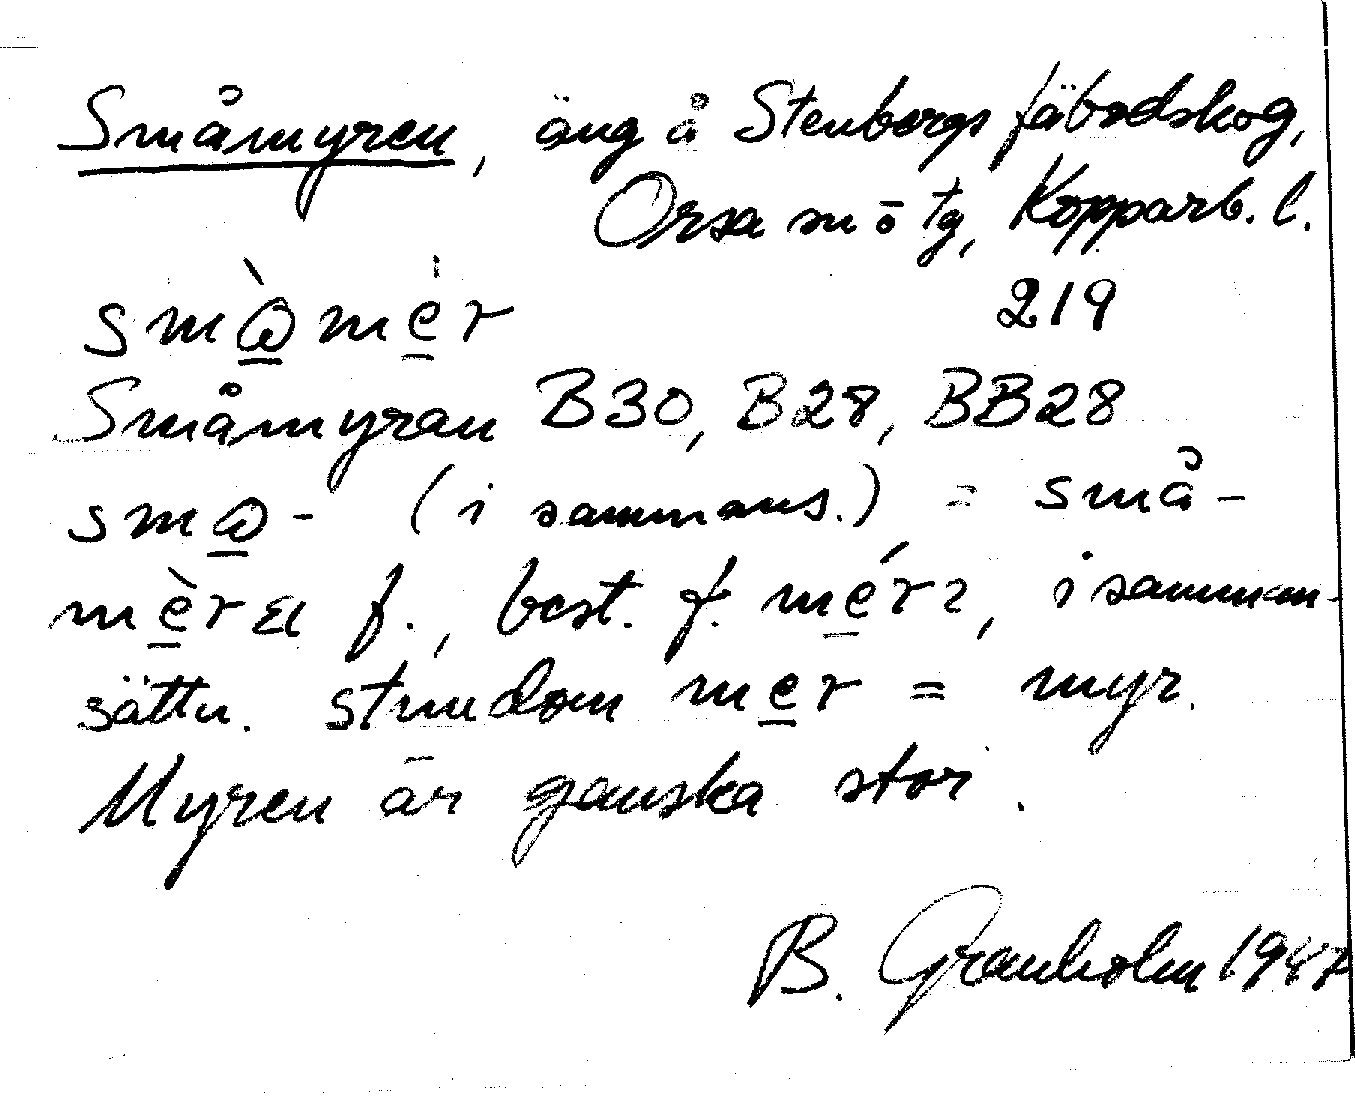 Småmyren, äng å Stenbergs fäbodskog,
Orsa sn ō tg, Kopparb. l.
219
Småmyran B30, B28, BB28
(i sammans.) = små-
f., best. f. i samman-
sättn. stundom mer = myr.
Myren är ganska stor.
B. Granholm 1947